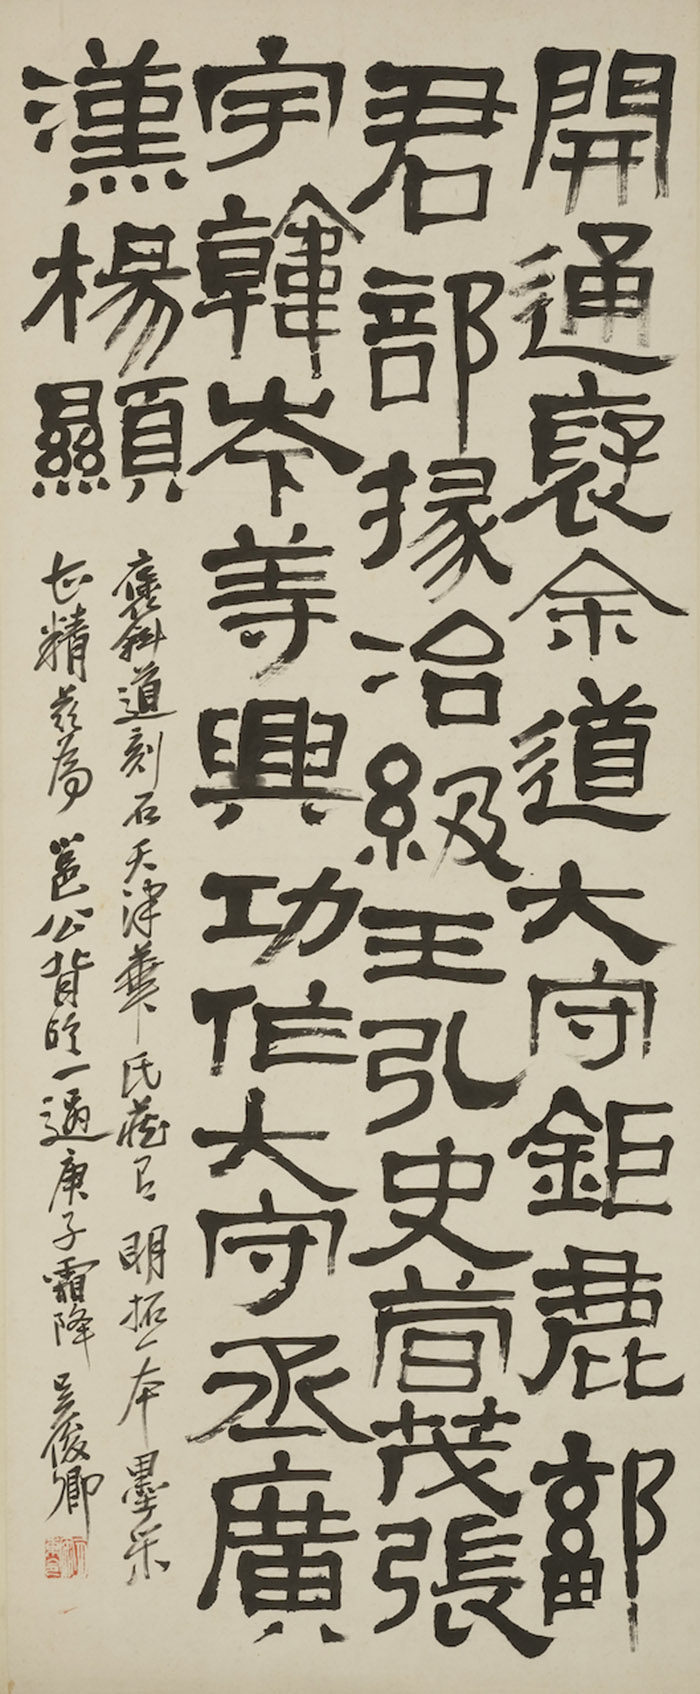 開通襃余道大守鉅鹿鄐
君部掾冶級王弘史荀茂張
宇韓岑等興功作大守丞廣
漢楊顯
褒斜道刻石天津華氏藏有明拓一本墨采
精茲為邕公背臨一過庚子霜降吳俊卿